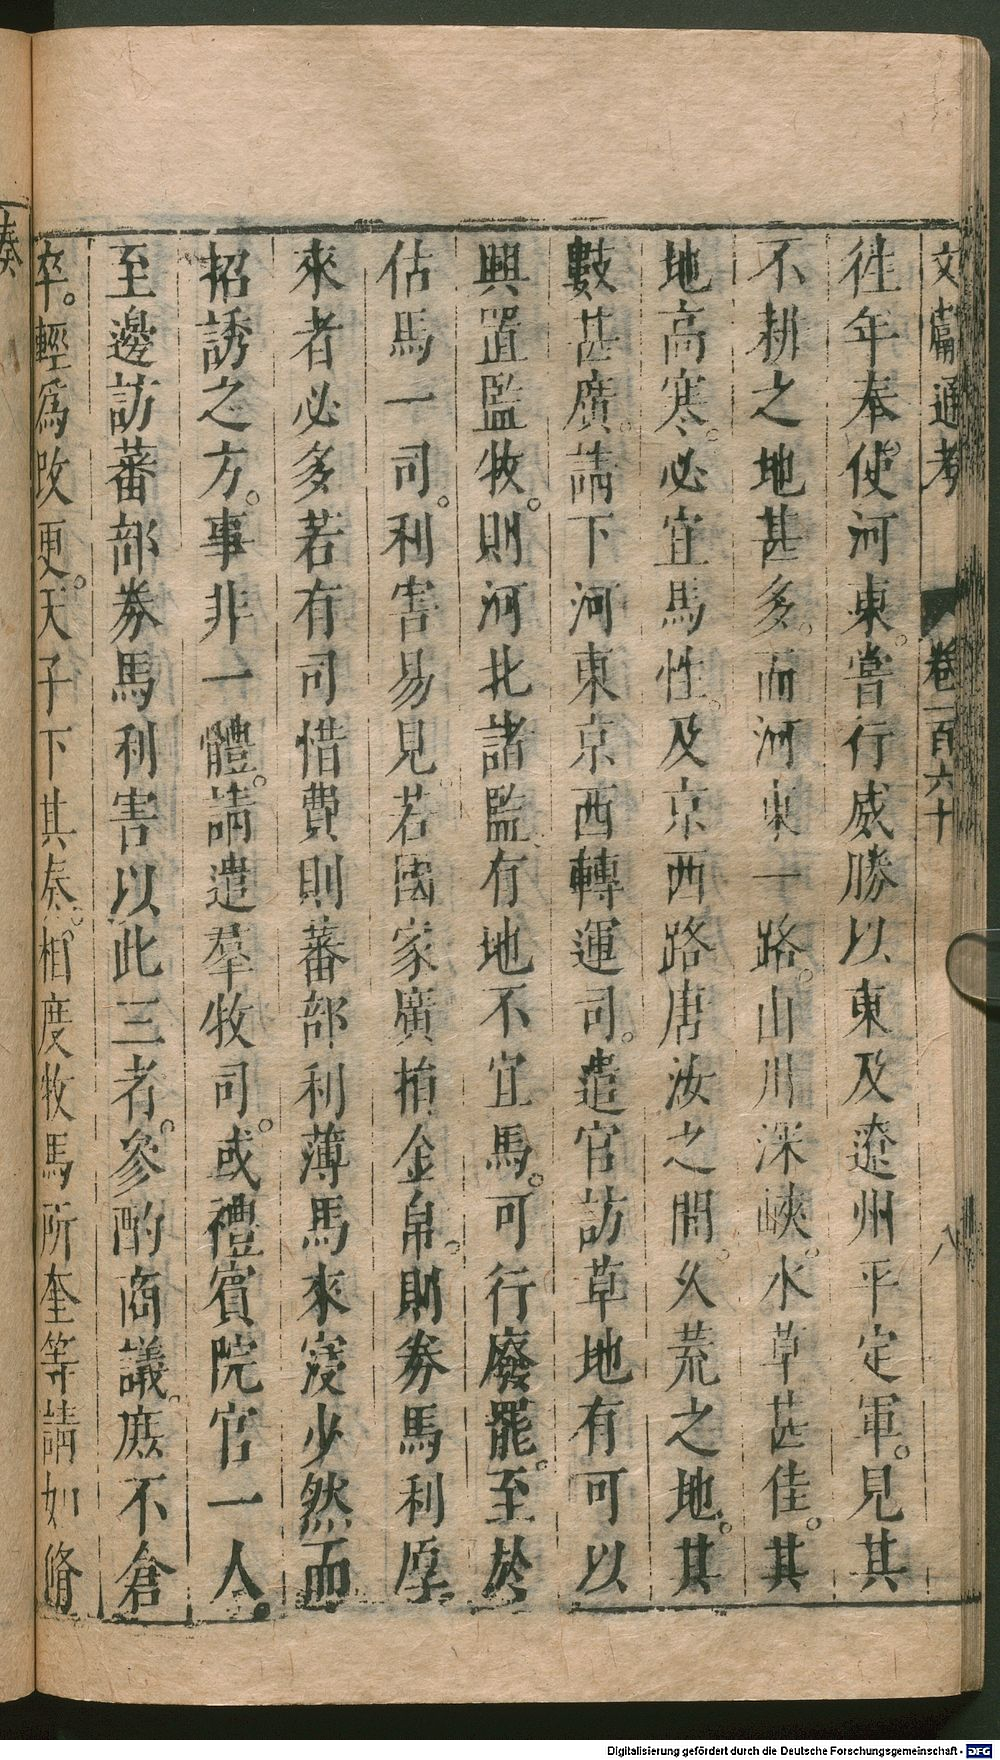 文獻通考 卷一百六十 八
往年奉使河東。嘗行威勝以東及遼州平定軍。見其
不耕之地甚多。而河東一路。山川深峽。水草甚佳。其
地高寒。必宜馬性。及京西路唐汝之間。久荒之地。其
數甚廣。請下河東京西轉運司。遣官訪草地有可以
興置監牧。則河北諸監有地不宜馬。可行廢罷。至於
估馬一司。利害易見。若國家廣捐金帛。則券馬利厚
來者必多若有司惜費則蕃部利薄馬來寖少然而
招誘之方。事非一體。請遣羣牧司。或禮賓院官一人。
至邊訪蕃部券馬利害以此三者。參酌商議。庶不倉
卒。輕爲改更。天子下其奏。相度牧馬所奎等請如脩
奏
Digitalisierung gefördert durch die Deutsche Forschungsgemeinschaft - DFG